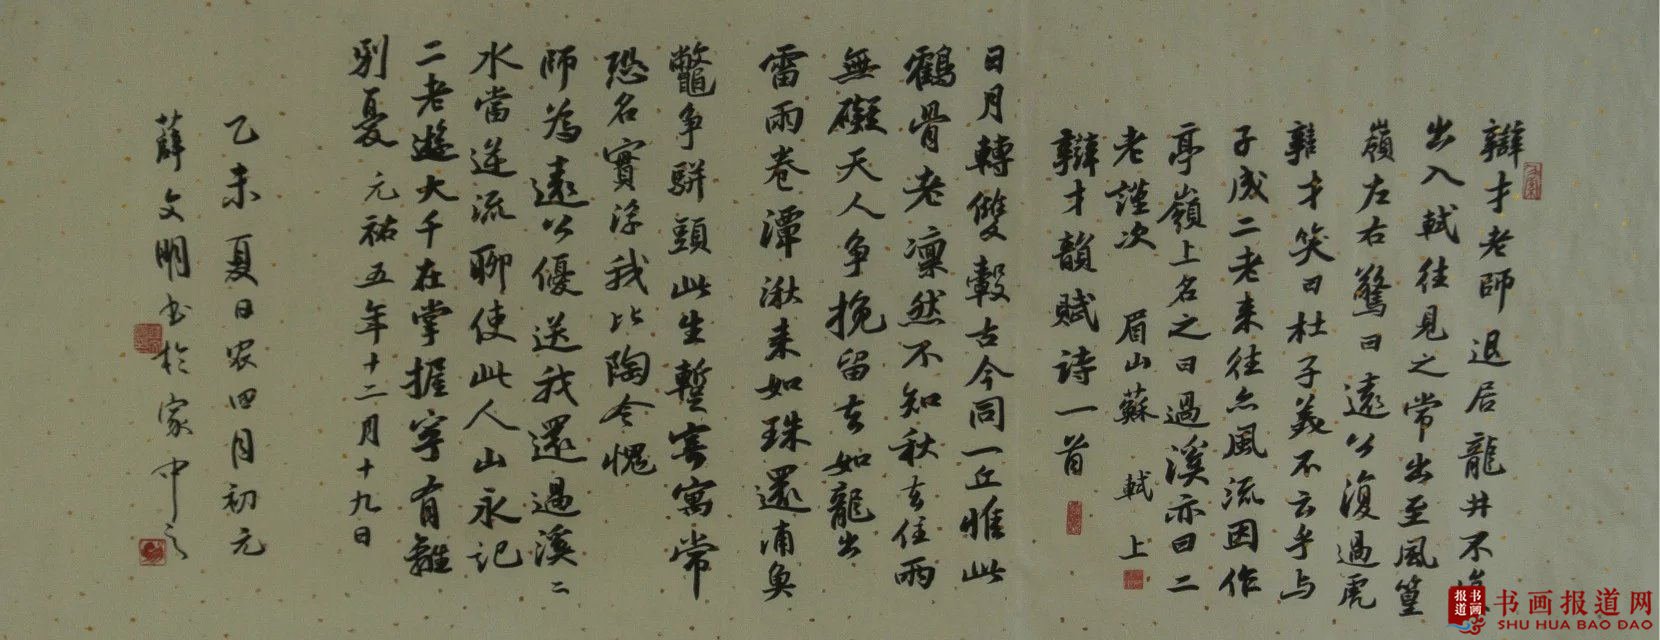 辯才老師退居龍井不復
出入軾往見之常出至風篁
嶺左右驚曰遠公復過虎
辯才笑曰杜子美不云乎与
子成二老来往亦風流因作
亭嶺上名之曰過溪亦曰二
老謹次 眉山蘇 軾 上
辯才韻賦詩一首
日月轉雙轂古今同一丘惟此
鶴骨老凜然不知秋去住兩
無礙天人争挽留去如龍出
雷雨卷潭湫来如珠還浦魚
鼈争駢頭此生暫寄寓常
恐名實浮我比陶令愧
師為遠公優送我還過溪二
水當逆流聊使此人山永記
二老遊大千在掌握寧有離
别憂 元祐五年十二月十九日
乙未夏日农四月初元
薛文明书於家中之
书画报道
书画报道网
SHU HUA BAO DAO